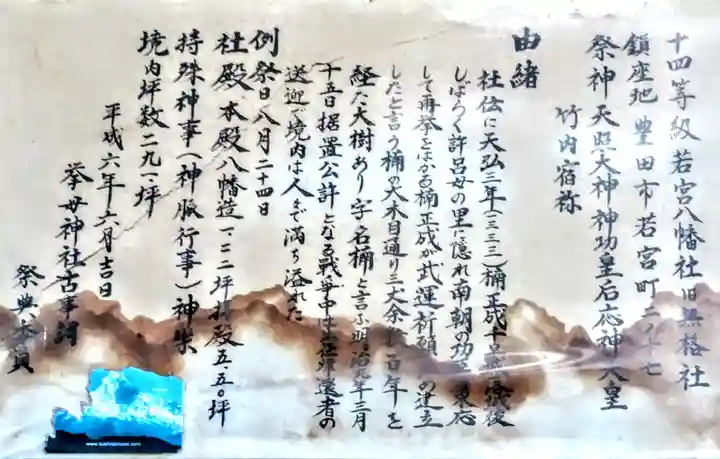 十四等級若宮八幡社旧無格社
鎮座地 豊田市若宮町二ノ十七
祭神 天照大神神功皇后応神天皇
竹内宿祢
由緒
社伝に天弘三年(一三三三)楠正成
後
しばらく許呂母の里に隠れ南朝の功
東応
して再挙をはかる楠正成が武運祈願
の建立
したと言う楠の大木目通り三丈余
百年を
経た大樹あり字名楠と言ふ明治
年三月
十五日据置公許となる戦争中は
征遠者の
送迎で境内は人々で満ち溢れた
例祭日八月二十四日
社殿 本殿八幡造一、二二坪拝殿五、五〇坪
特殊神事(神賑行事)神楽
境内坪数二九一坪
平成六年六月吉日
挙母神社古事詞
祭典委員
www.bushidomusic.com